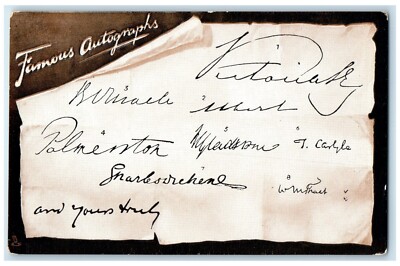 Famous Autographs
Victoria R
BDisraeli Albert
Palmerston WGladstone T. Carlyle
Charles Dickens
W M Thack
and yours truly